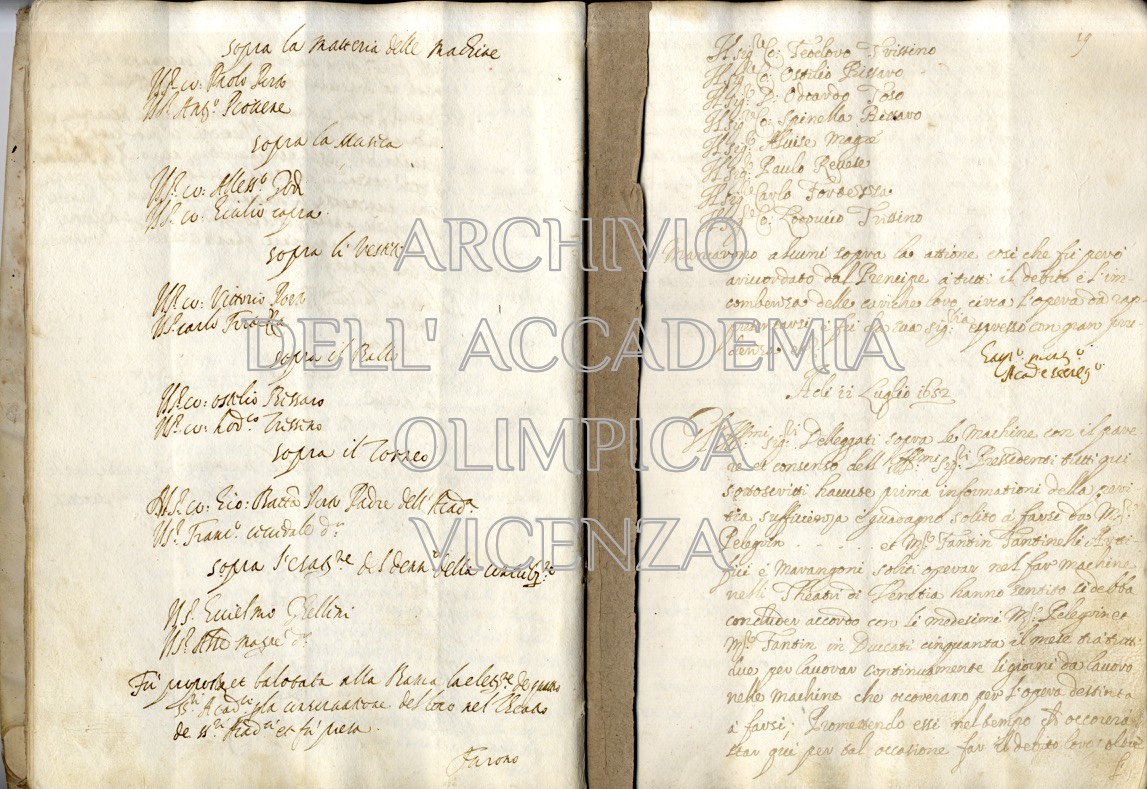 sopra la materia delle machine
Il Sr. co: Paolo Porto
Il Sr. Anto. Piovene
sopra la Musica
Il Sr. co: Alesso. Godi
Il Sr. co: Ecilio sopra.
sopra li Vestiti
Il Sr. co: Vittorio Porto
Il Sr. Carlo
sopra il Ballo
Il Sr. co: Ostilio Bissaro
Il Sr. co: Lodco. Trissino
sopra il Torneo
Il Sr. co: Gio: Batta Porto Padre dell' Acada.
Il Sr. Franco. cividale Dr.
sopra l'esatne. del denro. della
Il Sr. Guielmo Ghellini
Il Sr. Magrè Dr.
Fu proposto et balotata alla Banca la elettne. de quatro
Sri. Acadci. p la conservatione del loco nel Theatro
de ssri. Acadci. et fu presa.
Furono
19
Il sigre. Co: Teodoro Trissino
Il sigre. Co: Ostilio Bissaro
Il sigr. D: Odoardo Toso
Il sigre. Co: Spinella Bissaro
Il sigr. Aluise Magrè
Il sigr. Paulo Revese
Il sigr. Carlo Fortezza
Il sigre. Co: Lodovico Trissino
Mancavono alcuni sopra la attione così che fù però
aricordato dal Prencipe à tutti il debito è l'in-
combenza delle cariche loro circa l'opera da rap
presentarsi, e fù da sua sigria. espresso con gran pru
denza
Acado. secrego.
Adi 11 Luglio 1652
Gl'Illmi. Sigri. Delleggati sopra le Machine con il pare
re et consenso dell'Illmi. Sigri. Pressidenti tutti qui
sottoscritti havute prima informationi della peri
tia sufficienza è guadagno solito à farsi da Mro.
Pelegrin . . . . . . et Mro. Fantin Fantinelli Arti
fici è Marangoni soliti operar nel far machine
nelli Theatri di Venetia hanno sentito si debba
concluder accordo con li medesimi Mro. Pelegrin et
Mro. Fantin in Ducati cinquanta il mese trà tutti
due per lavorar continuamente li giorni da lavoro
nelle machine che occorerano per l'opera destinta
à farsi; Promettendo essi nel tempo occorerà
star qui per tal occasione far il debito loro
ARCHIVIO
DELL' ACCADEMIA
OLIMPICA
VICENZA